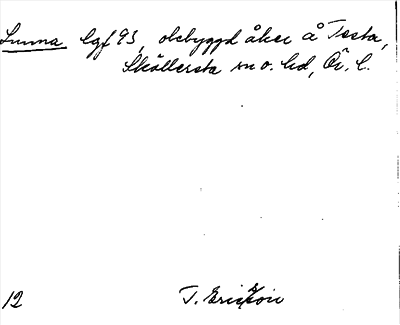 Sunna lgf 93, obebyggd åker å Testa,
Sköllersta sn o. hd, Ör. l.
12
T. Ericsson